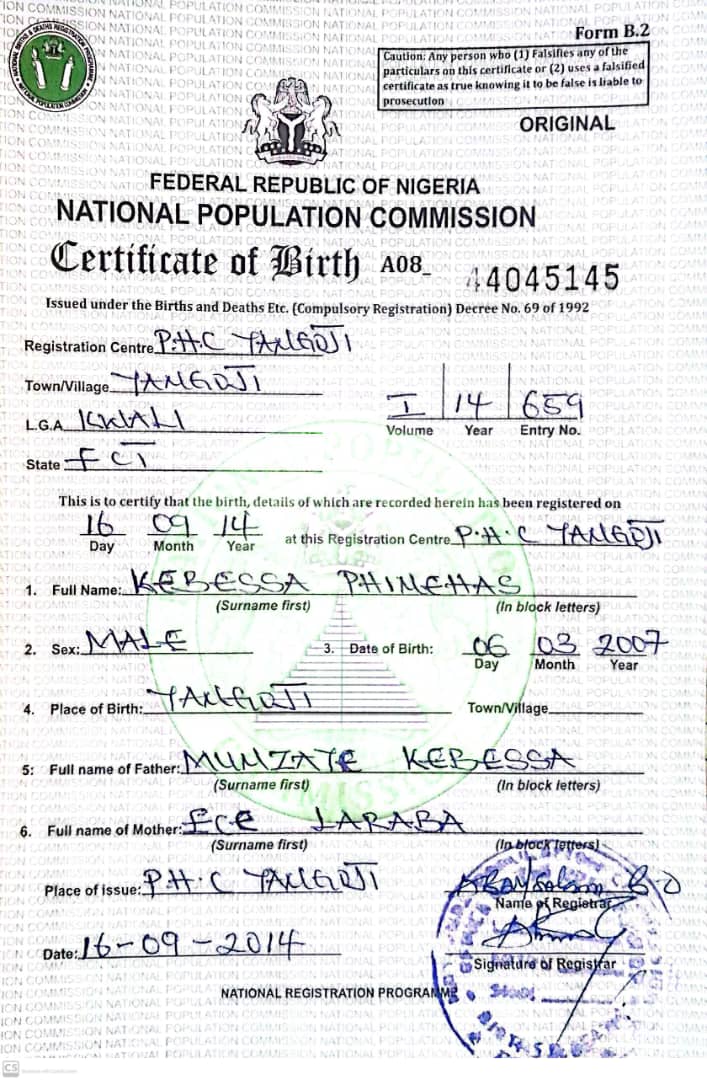 Form B.2
Caution: Any person who (1) Falsifies any of the
particulars on this certificate or (2) uses a falsified
certificate as true knowing it to be false is liable to
prosecution
ORIGINAL
FEDERAL REPUBLIC OF NIGERIA
NATIONAL POPULATION COMMISSION
Certificate of Birth A08_ 44045145
Issued under the Births and Deaths Etc. (Compulsory Registration) Decree No. 69 of 1992
Registration Centre P.H.C YANGOJI
Town/Village YANGOJI
L.G.A KWALI
I 14 659
Volume Year Entry No.
State FCT
This is to certify that the birth, details of which are recorded herein has been registered on
16 09 14 at this Registration Centre P.H.C YANGOJI
Day Month Year
1. Full Name: KEBESSA PHINEHAS
(Surname first) (In block letters)
2. Sex: MALE 3. Date of Birth: 06 03 2007
Day Month Year
4. Place of Birth: YANGOJI Town/Village
5: Full name of Father: MUNZATE KEBESSA
(Surname first) (In block letters)
6. Full name of Mother: ECE LARABA
(Surname first) (In block letters)
Place of issue: P.H.C YANGOJI
Name of Registrar
Date: 16-09-2014
Signature of Registrar
NATIONAL REGISTRATION PROGRAMME
CS